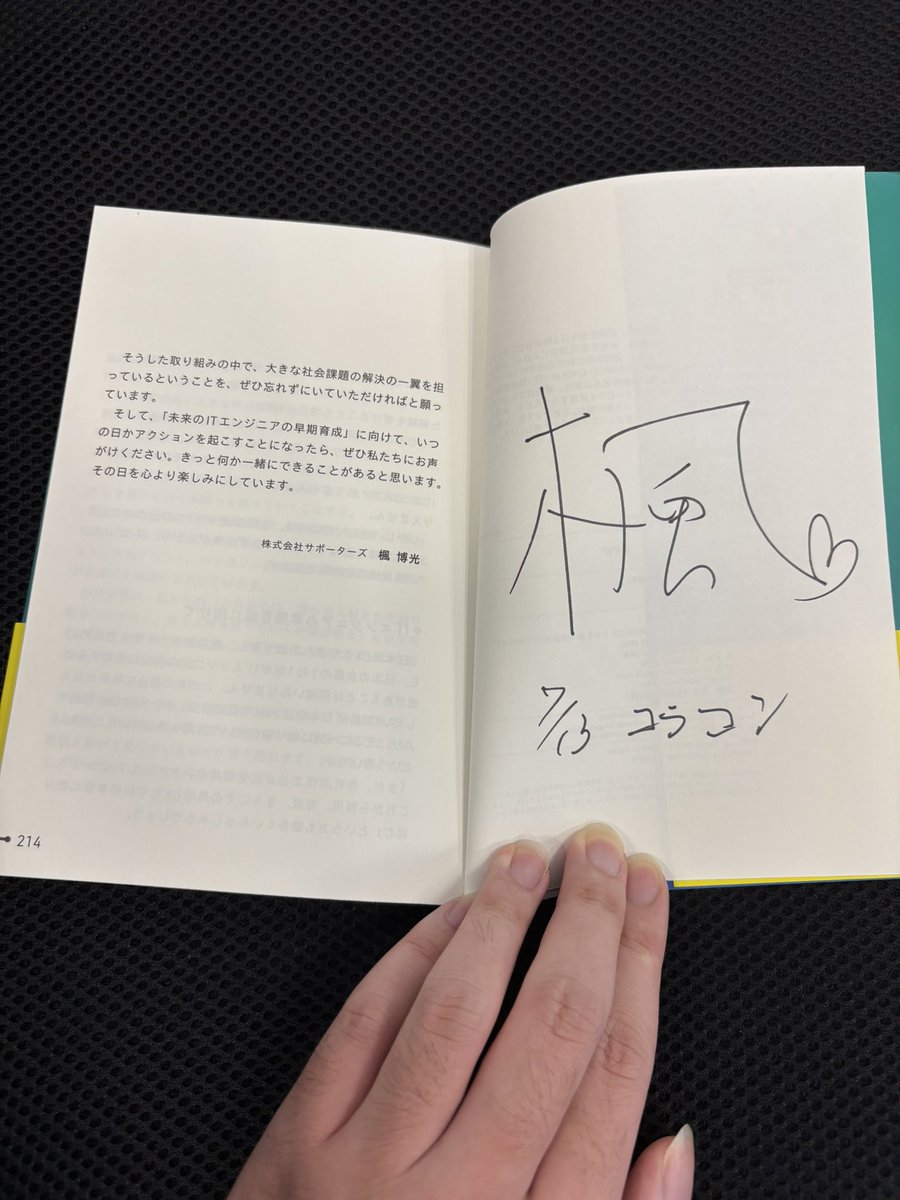 そうした取り組みの中で、大きな社会課題の解決の一翼を担
っているということを、ぜひ忘れずにいていただければと願っ
ています。
そして、「未来のITエンジニアの早期育成」に向けて、いつ
の日かアクションを起こすことになったら、ぜひ私たちにお声
がけください。きっと何か一緒にできることがあると思います。
その日を心より楽しみにしています。
株式会社サポーターズ 楓 博光
214
楓
7/13 コラコン